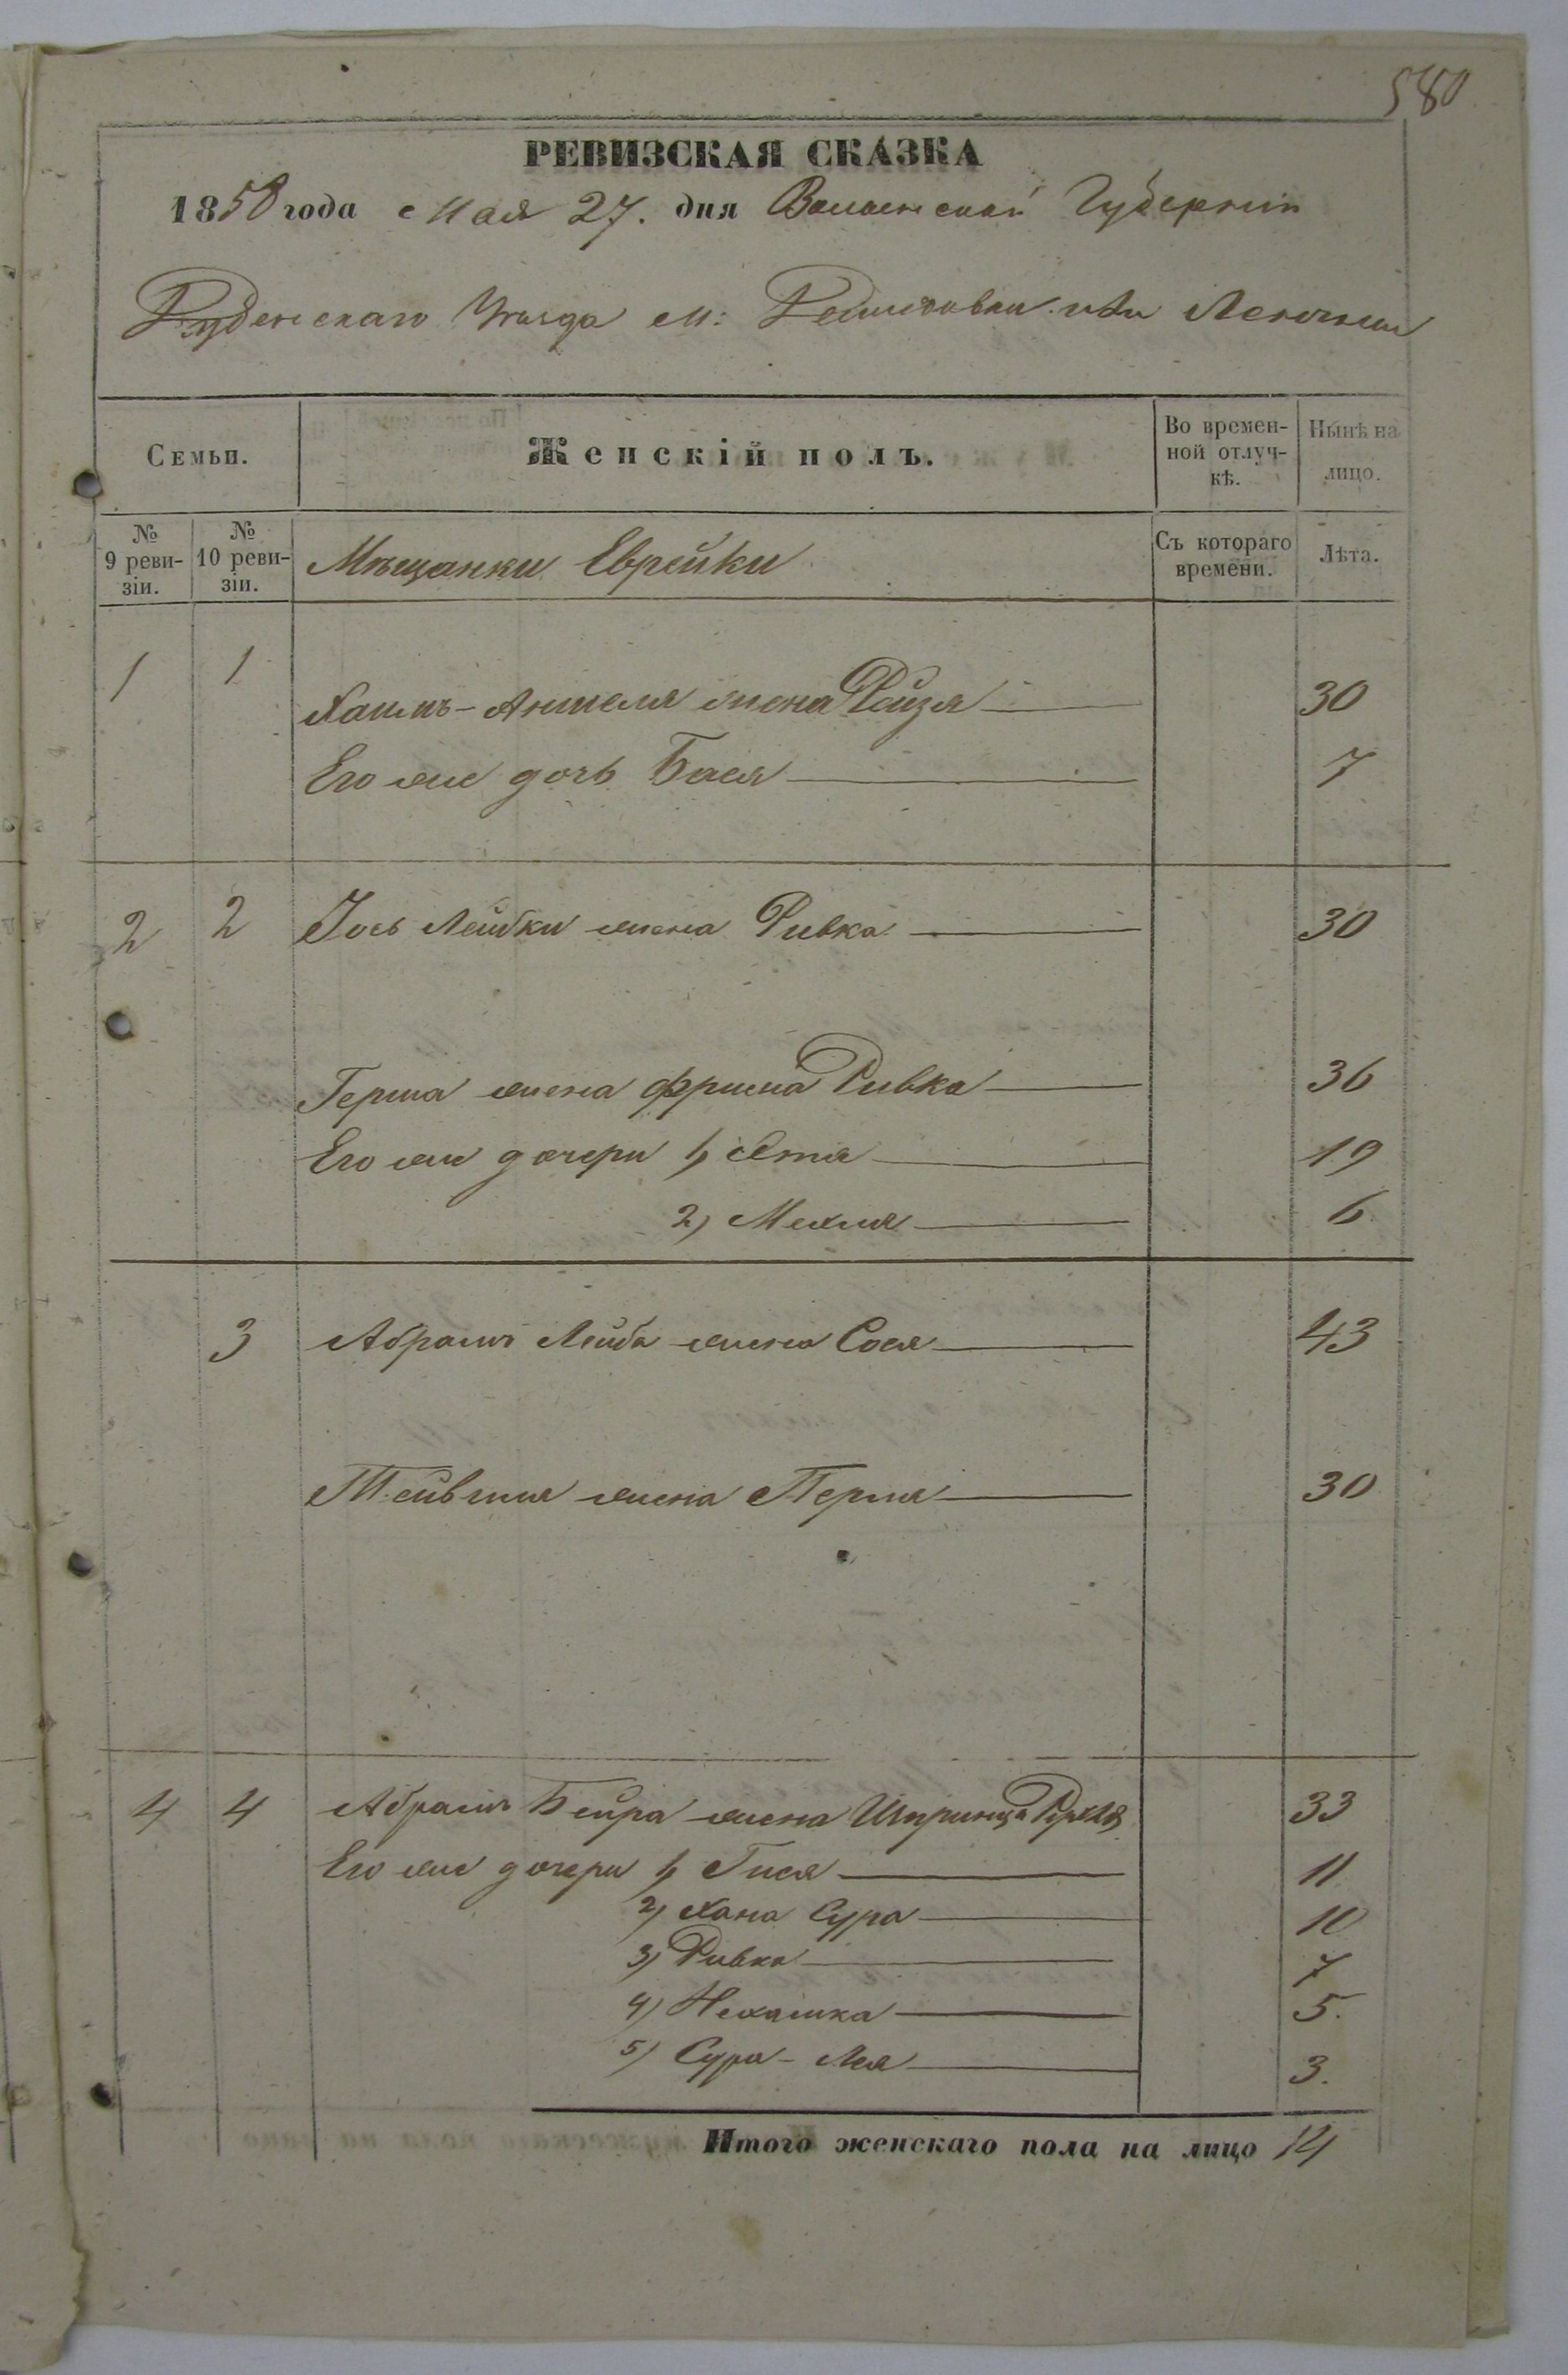 580
РЕВИЗСКАЯ СКАЗКА
1858 года Мая 27. дня Волынской Губерніи
Уезда м:
Семьи.
Женскій полъ.
Во времен-
ной отлуч-
кѣ.
Нынѣ на
лицо.
№
9 реви-
зіи.
№
10 реви-
зіи.
Мѣщанки Еврейки
Съ котораго
времени.
Лѣта.
1 1
Хаимъ-Аншеля жена Рейзя 30
Его же дочь Бася 7
2 2 Іось Лейбки жена Ривка 30
Герша жена Фрима Ривка 36
Его же дочери 1, 19
2, 6
3 Абрамъ Лейба жена Сося 43
жена Перля 30
4 4 Абрамъ Бейра жена Шпринца Рухля 33
Его же дочери 1, Гися 11
2, Хана Сура 10
3) Ривка 7
4) Нехамка 5.
5) Сура-Лея 3.
Итого женскаго пола на лицо 14